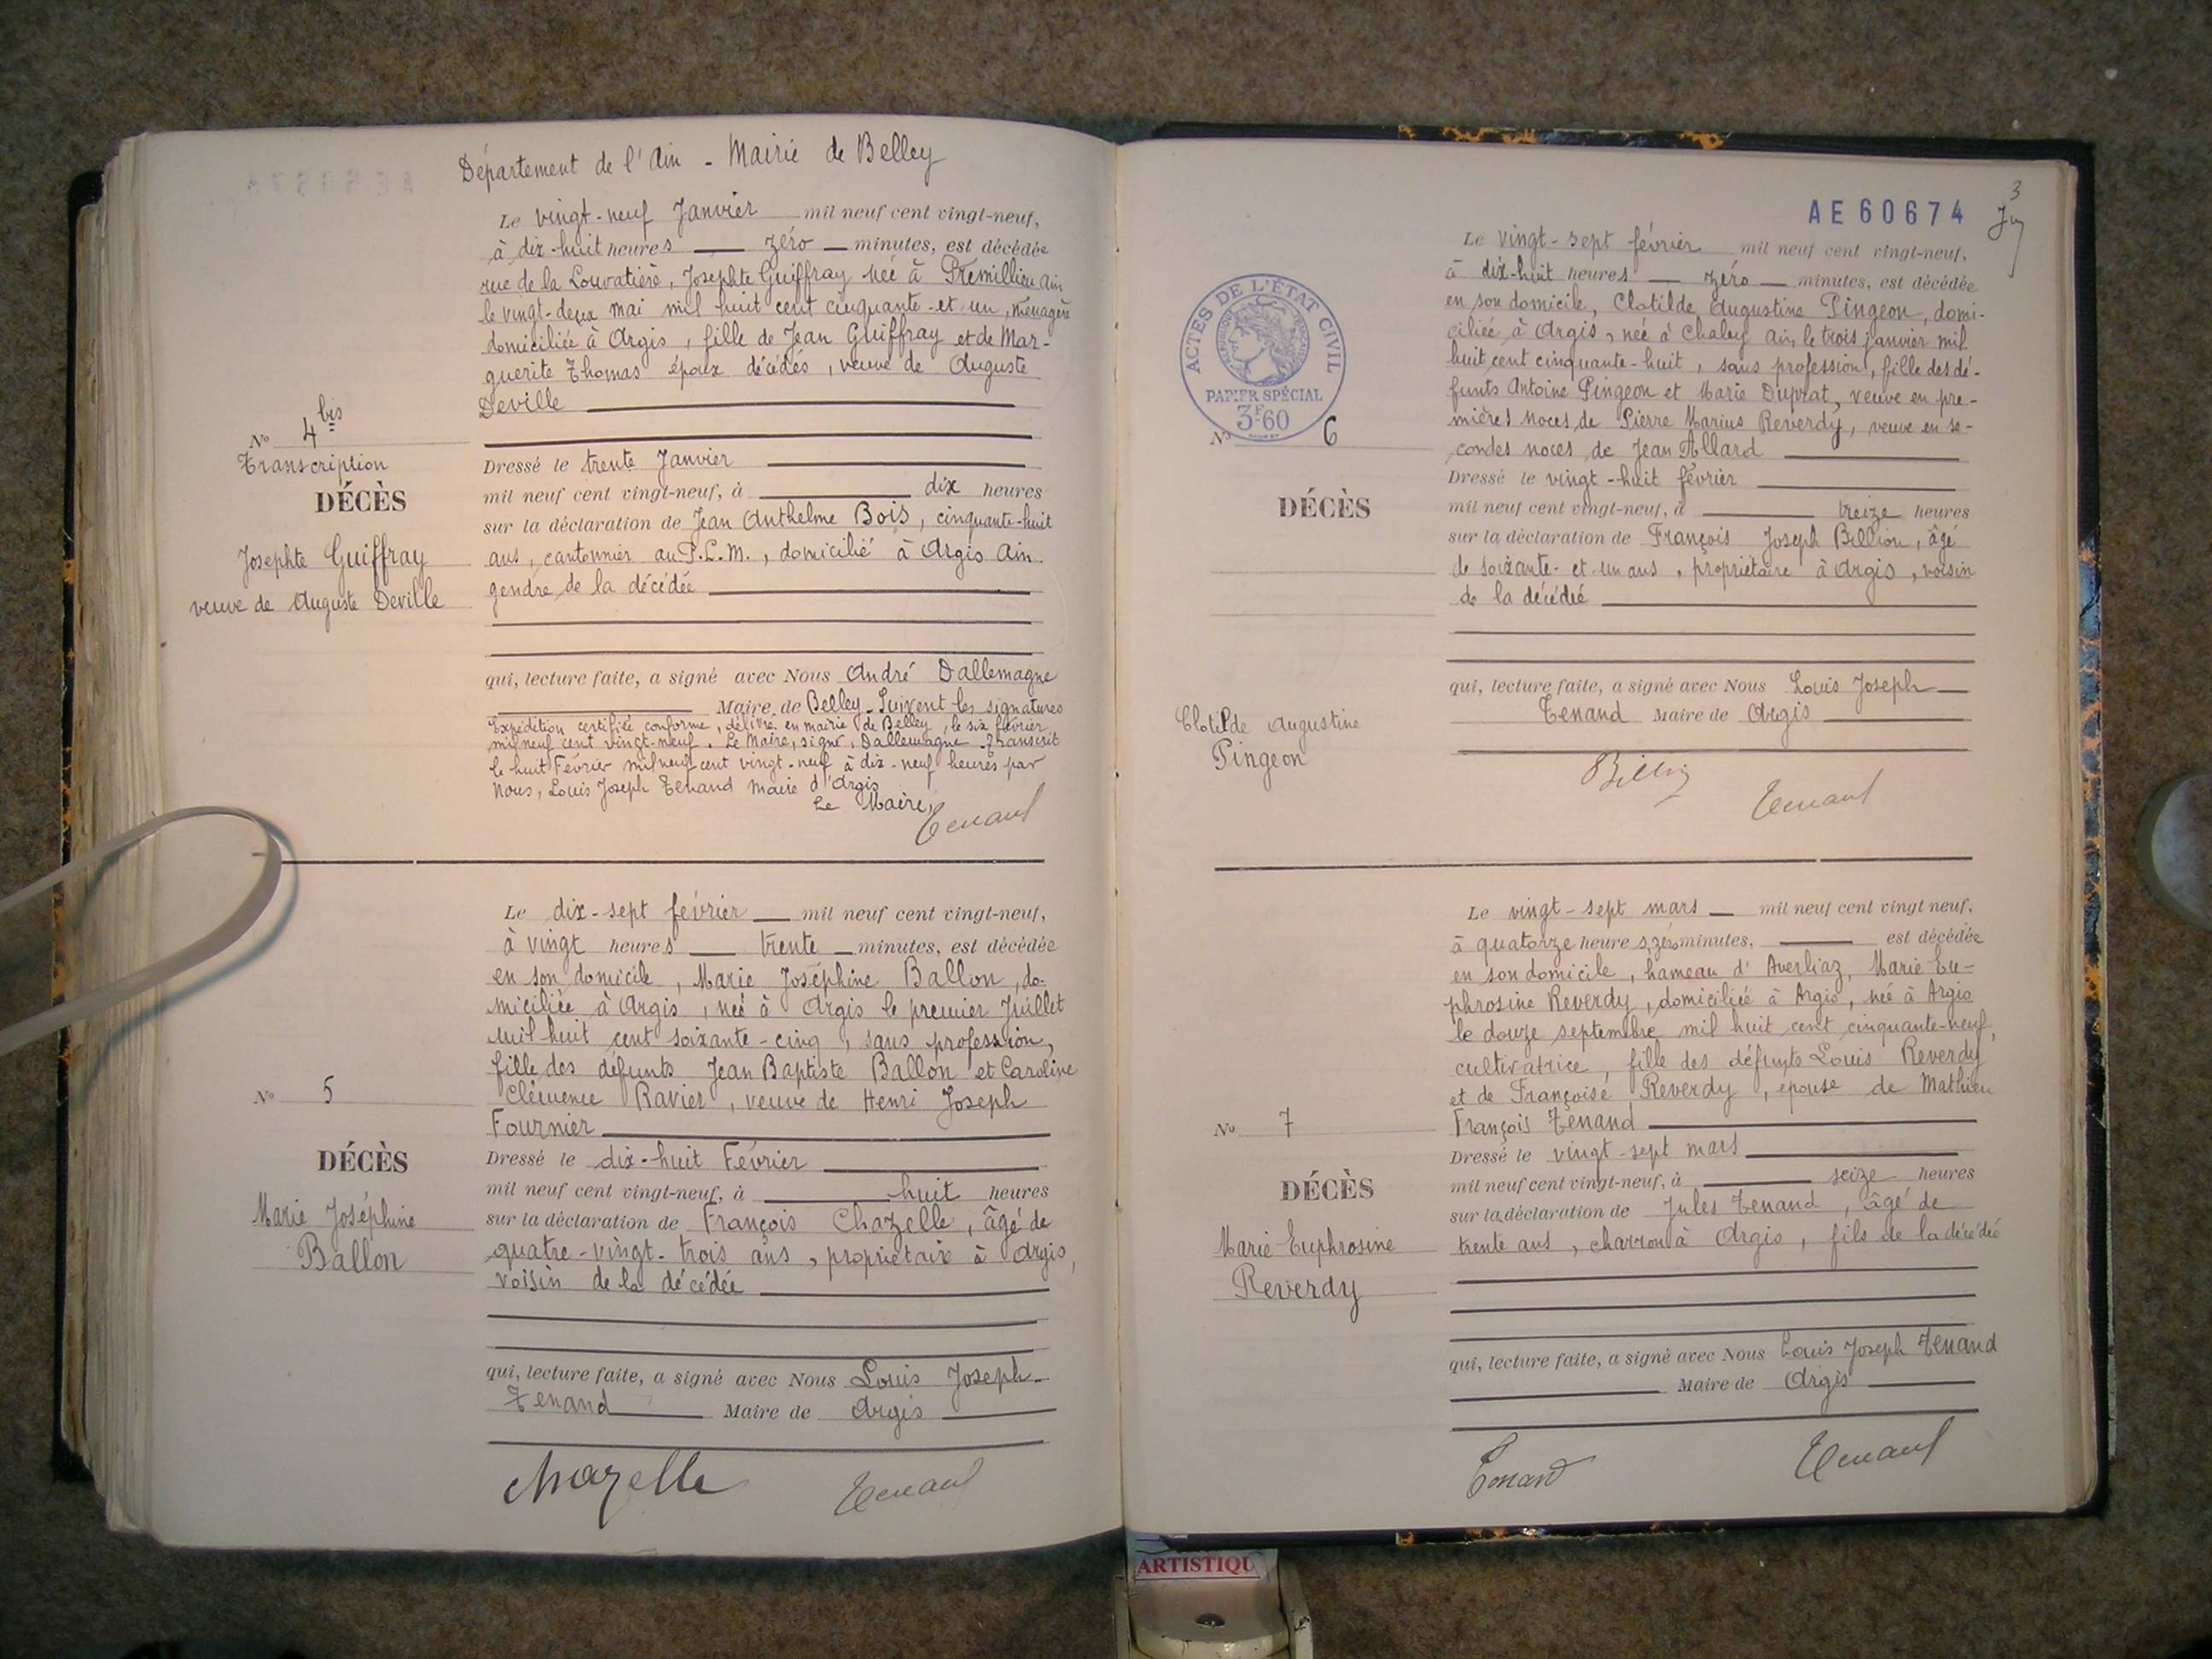 Département de l'Ain - Mairie de Belley
Le vingt-neuf Janvier mil neuf cent vingt-neuf,
à dix-huit heures zéro minutes, est décédée
rue de la Louvatière, Josephte Guiffray née à Prémillieu Ain
le vingt-deux mai mil huit cent cinquante-et un, ménagère
domiciliée à Argis, fille de Jean Guiffray et de Mar-
guerite Thomas époux décédés, veuve de Auguste
Deville
No 4 bis
Transcription
DÉCÈS
Josephte Guiffray
veuve de Auguste Deville
Dressé le trente Janvier
mil neuf cent vingt-neuf, à dix heures
sur la déclaration de Jean Anthelme Bois, cinquante-huit
ans, cantonnier au P.L.M., domicilié à Argis Ain
gendre de la décédée
qui, lecture faite, a signé avec Nous André Dallemagne
Maire de Belley. Suivent les signatures
Expédition certifiée conforme, délivré en mairie de Belley, le six février
mil neuf cent vingt-neuf. Le Maire, signé, Dallemagne Transcrit
le huit Février mil neuf cent vingt-neuf à dix-neuf heures par
Nous, Louis Joseph Tenand maire d'Argis
Le Maire,
Tenand
Le dix-sept février mil neuf cent vingt-neuf,
à vingt heures trente minutes, est décédée
en son domicile, Marie Joséphine Ballon, do-
miciliée à Argis, née à Argis le premier Juillet
mil huit cent soixante-cinq, sans profession,
fille des défunts Jean Baptiste Ballon et Caroline
Clémence Ravier, veuve de Henri Joseph
Fournier
No 5
DÉCÈS
Marie Joséphine
Ballon
Dressé le dix-huit Février
mil neuf cent vingt-neuf, à huit heures
sur la déclaration de François Chazelle, âgé de
quatre-vingt-trois ans, propriétaire à Argis,
voisin de la décédée
qui, lecture faite, a signé avec Nous Louis Joseph
Tenand Maire de Argis
Chazelle Tenand
AE 60674
3
Le vingt-sept février mil neuf cent vingt-neuf,
à dix-huit heures zéro minutes, est décédée
en son domicile, Clotilde Augustine Pingeon, domi-
ciliée à Argis, née à Chaley Ain, le trois janvier mil
huit cent cinquante-huit, sans profession, fille des dé-
funts Antoine Pingeon et Marie Duprat, veuve en pre-
mières noces, de Pierre Marius Reverdy, veuve en se-
condes noces de Jean Allard
ACTES DE L'ÉTAT CIVIL
RÉPUBLIQUE FRANÇAISE
PAPIER SPÉCIAL
3F60
No 6
DÉCÈS
Clotilde Augustine
Pingeon
Dressé le vingt-huit février
mil neuf cent vingt-neuf, à treize heures
sur la déclaration de François Joseph Billion, âgé
de soixante-et-un ans, propriétaire à Argis, voisin
de la décédée
qui, lecture faite, a signé avec Nous Louis Joseph
Tenand Maire de Argis
Tenand
Le vingt-sept mars mil neuf cent vingt neuf,
à quatorze heures zéro minutes, est décédée
en son domicile, hameau d'Averliaz, Marie Eu-
phrosine Reverdy, domiciliée à Argis, née à Argis
le douze septembre mil huit cent cinquante-neuf,
cultivatrice, fille des défunts Louis Reverdy
et de Françoise Reverdy, épouse de Mathieu
François Tenand
No 7
DÉCÈS
Marie Euphrosine
Reverdy
Dressé le vingt-sept mars
mil neuf cent vingt-neuf, à seize heures
sur la déclaration de Jules Tenand, âgé de
trente ans, charron à Argis, fils de la décédée
qui, lecture faite, a signé avec Nous Louis Joseph Tenand
Maire de Argis
Tenand Tenand
ARTISTIQU